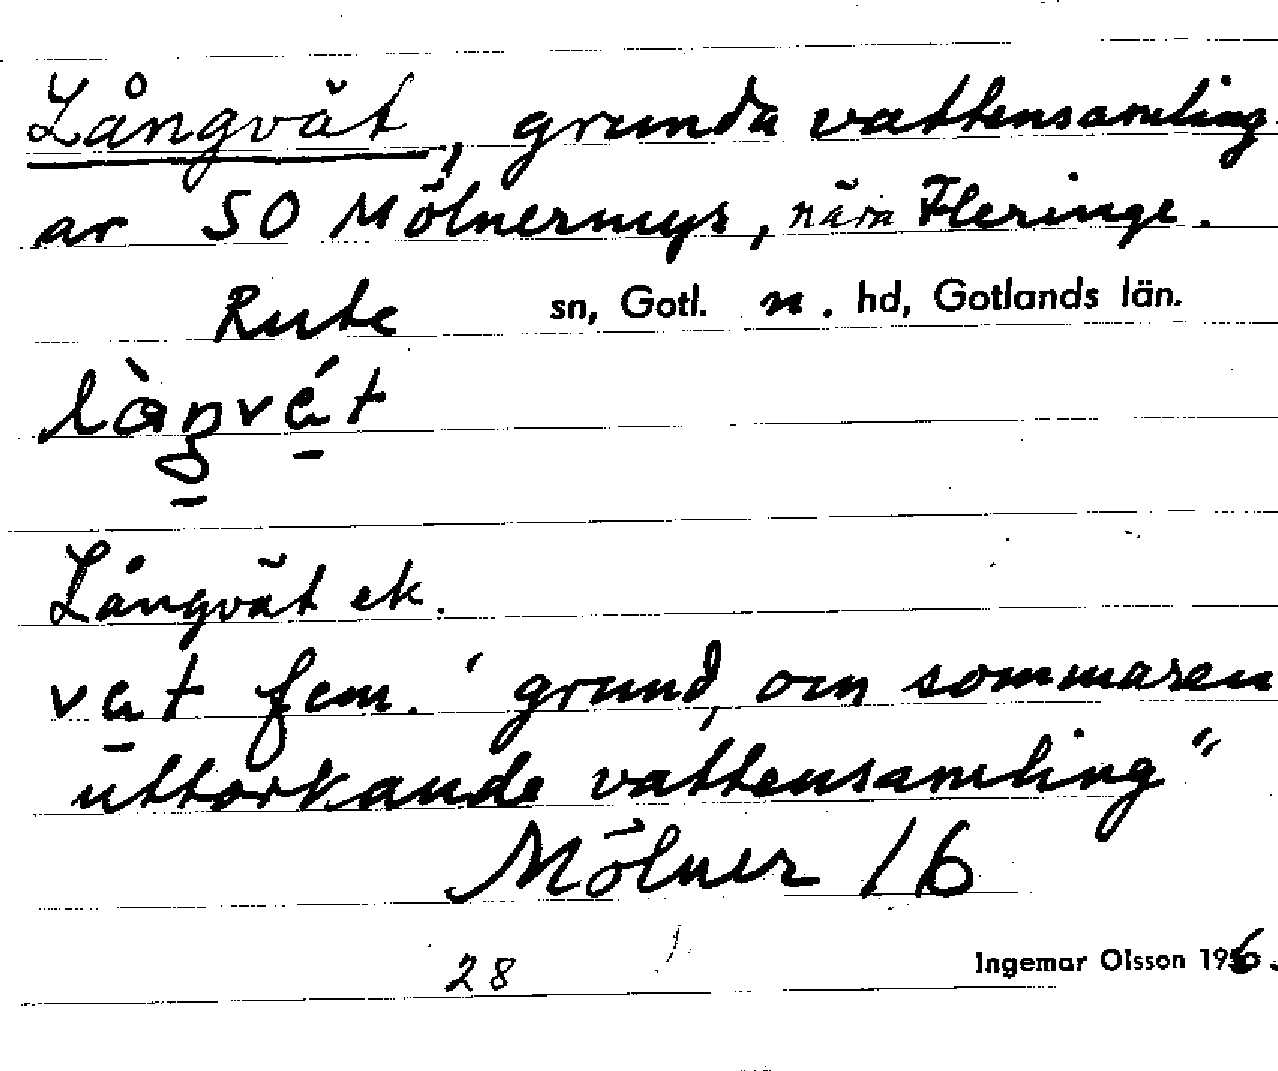 Långvät, grunda vattensamling
ar SO Mölnermys, nära Fleringe.
Rute sn, Gotl. n. hd, Gotlands län.
làŋvát
Långvät ek.
vat fem. "grund, om sommaren
uttorkande vattensamling"
Mölner 16
28 Ingemar Olsson 196.